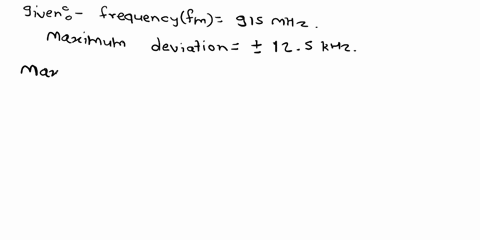 given:- frequency(fm)= 915 MHz.
Maximum deviation= ± 12.5 kHz.
Max